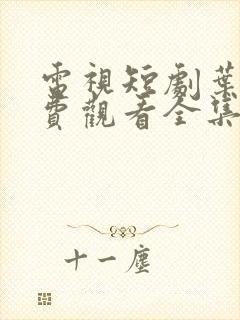 電視短劇葉
費觀看全集
十一塵